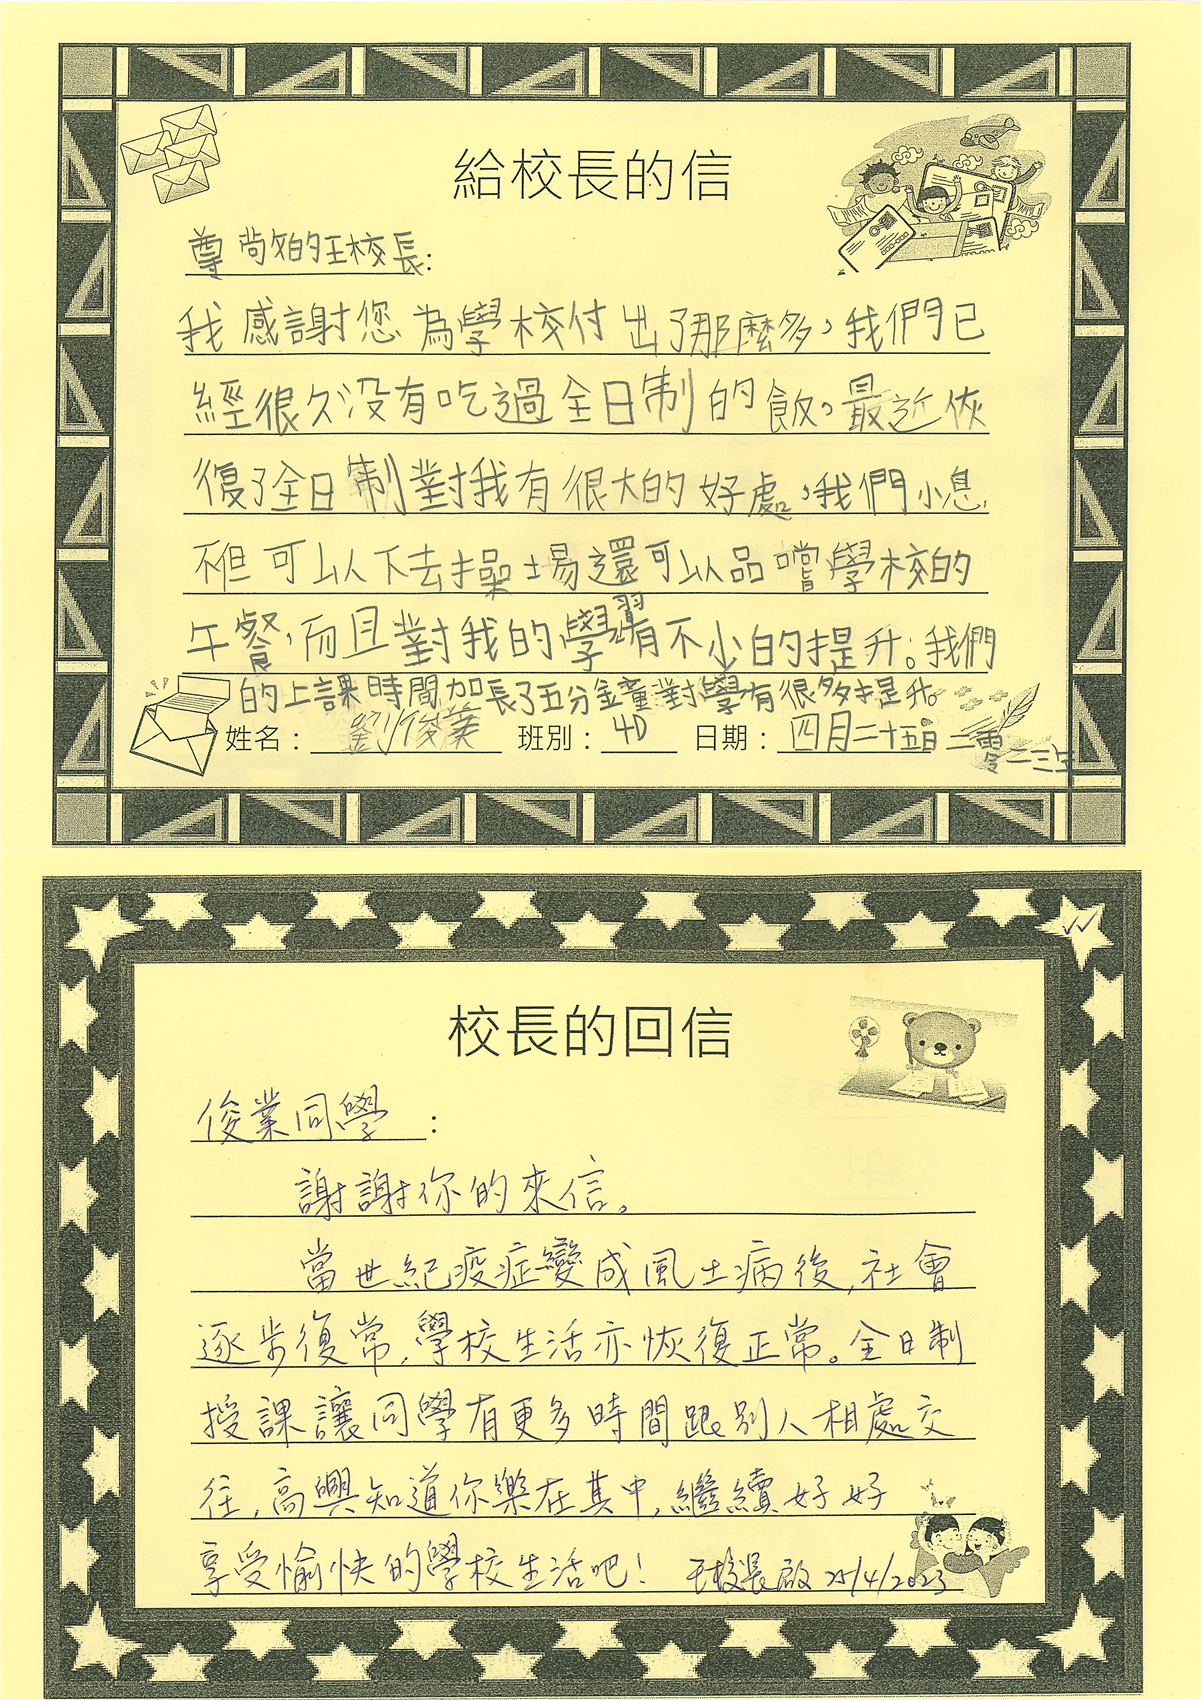 給校長的信
尊尚知的王校長：
我感謝您為學校付出了那麼多，我們已
經很久没有吃過全日制的飯，最近恢
復了全日制對我有很大的好處，我們小息
不但可以下去操場還可以品嚐學校的
午餐，而且對我的學習有不小的提升。我們
的上課時間加長了五分鐘對學有很多提升。
姓名：劉俊業 班別：4D 日期：四月二十五日二零二三年
校長的回信
俊業同學：
謝謝你的來信。
當世紀疫症變成風土病後，社會
逐步復常，學校生活亦恢復正常。全日制
授課讓同學有更多時間跟別人相處交
往，高興知道你樂在其中，繼續好好
享受愉快的學校生活吧！ 王校長啟 25/4/2023